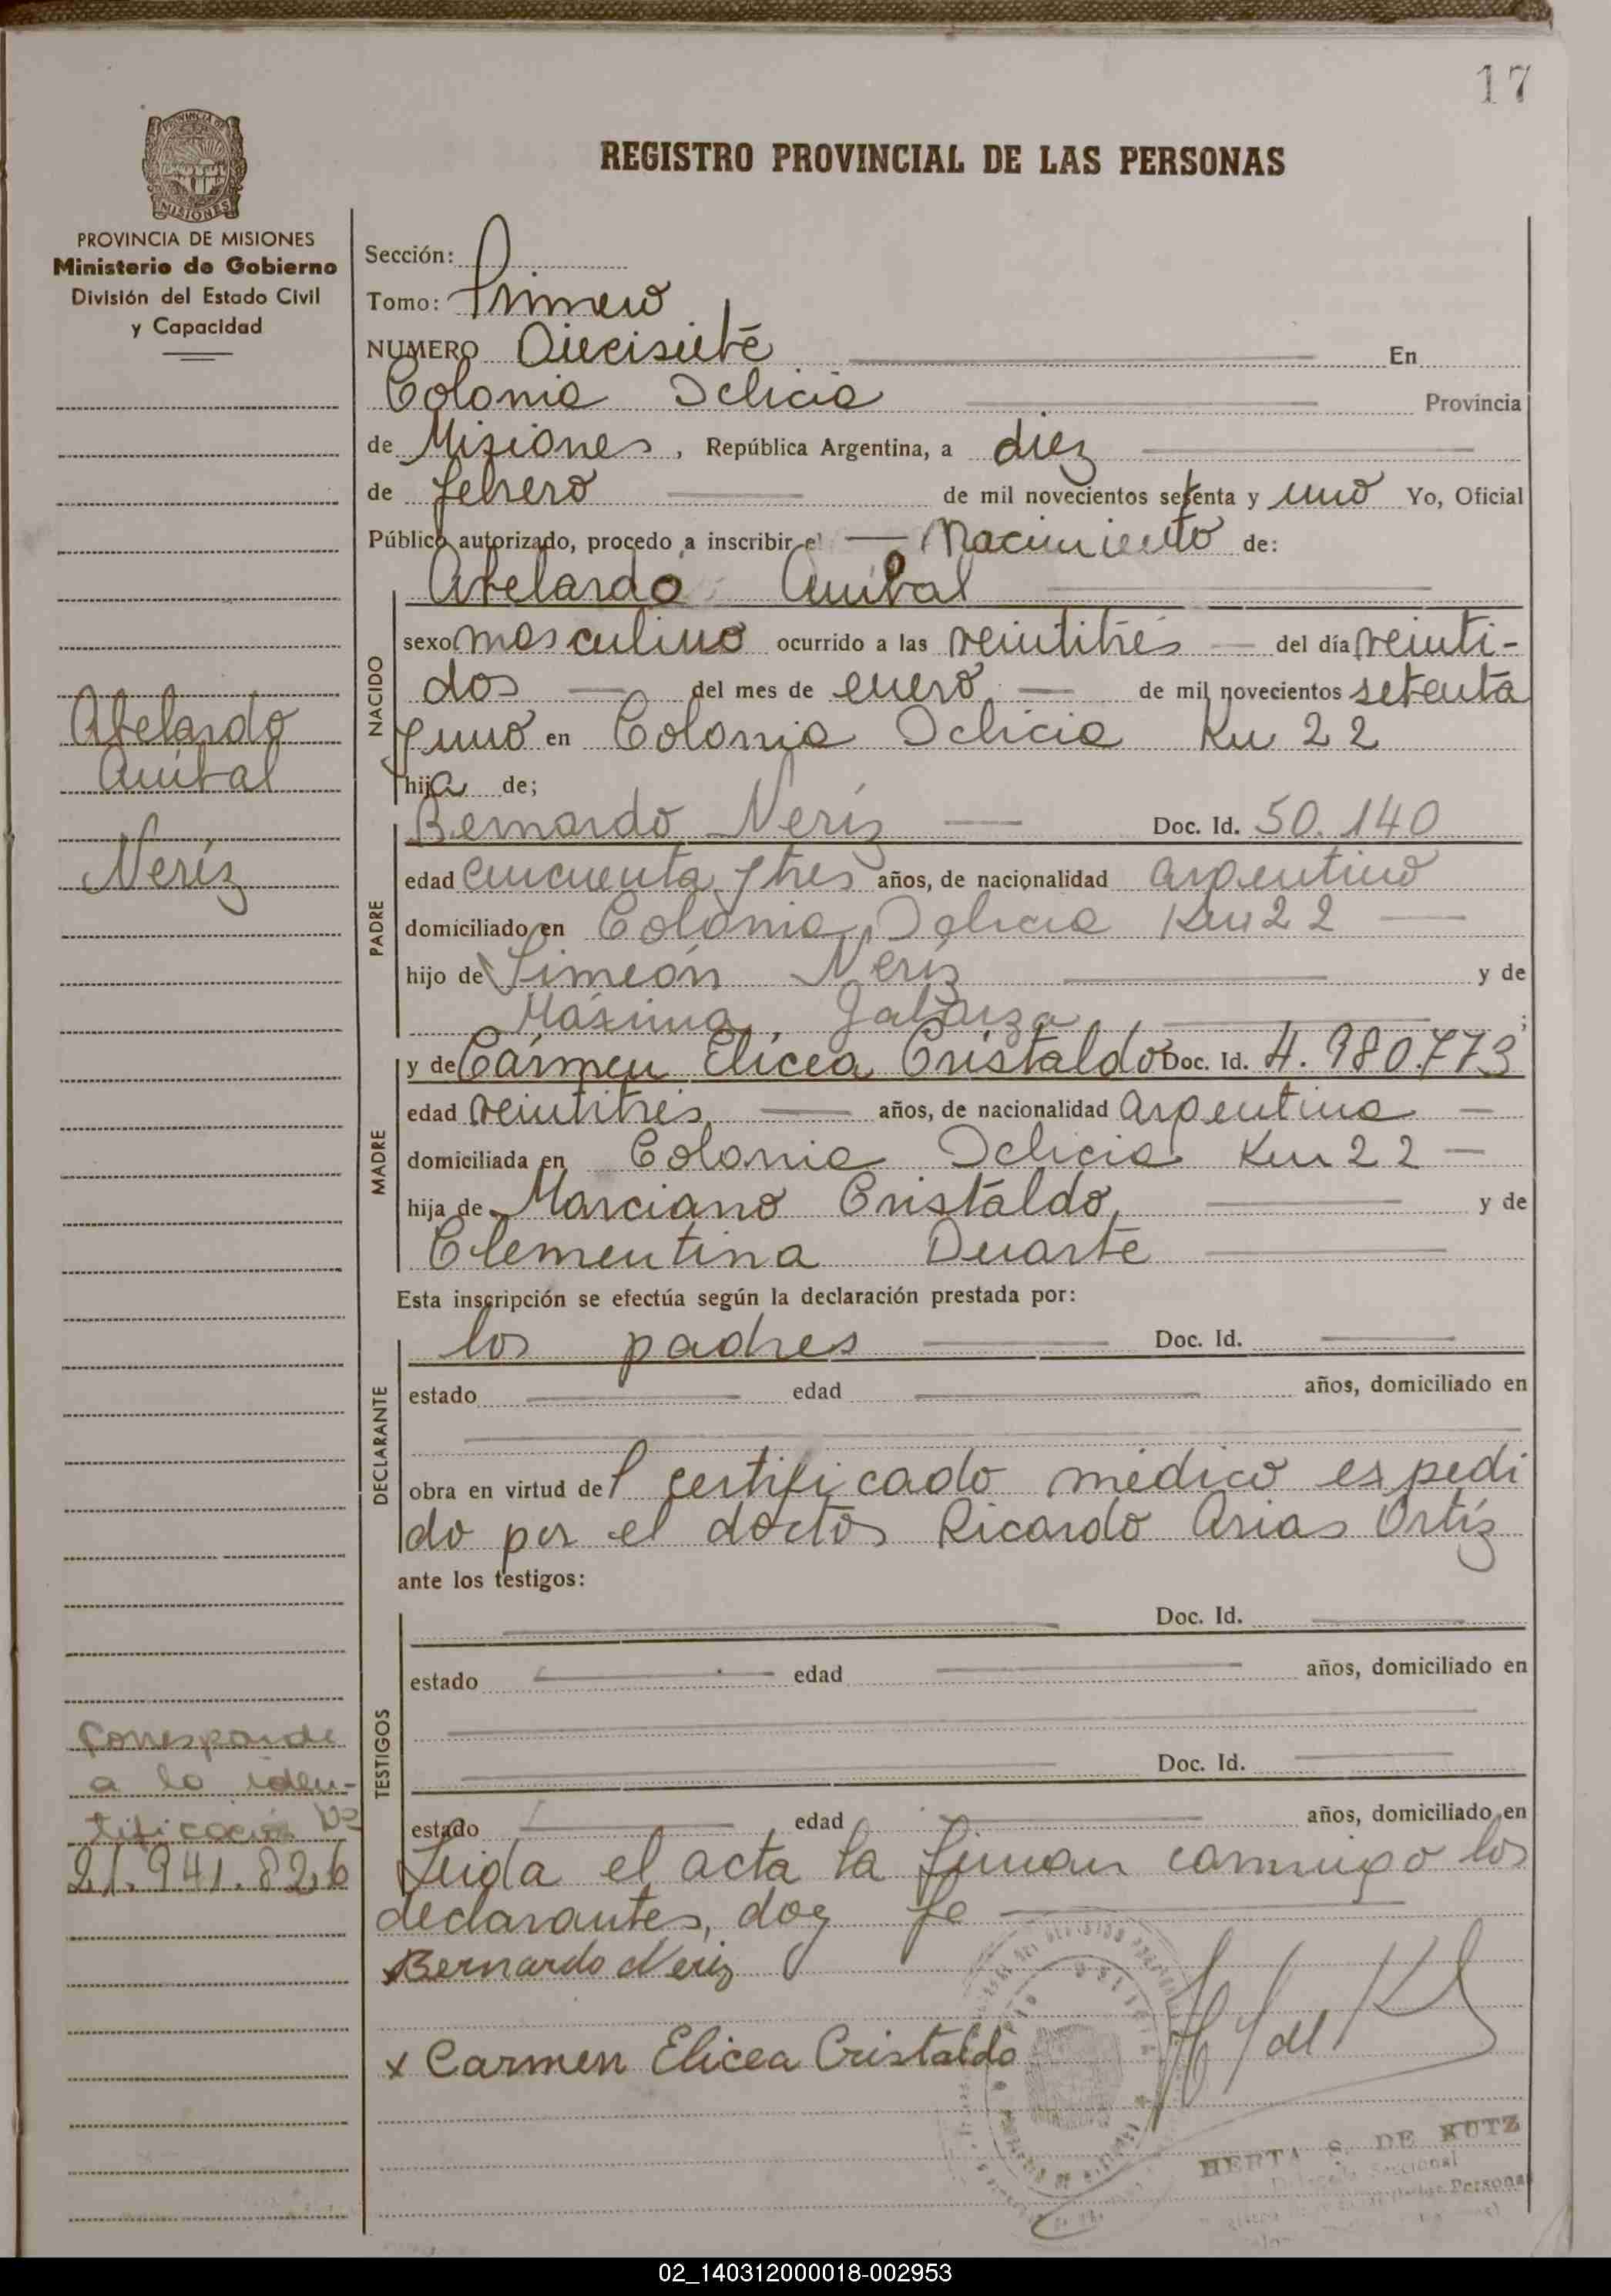 17
REGISTRO PROVINCIAL DE LAS PERSONAS
PROVINCIA DE MISIONES
Ministerio de Gobierno
División del Estado Civil
y Capacidad
Sección:
Tomo: Primero
NUMERO Diecisiete En
Colonia Delicia Provincia
de Misiones, República Argentina, a diez
de febrero de mil novecientos setenta y uno Yo, Oficial
Público autorizado, procedo a inscribir el Nacimiento de:
Abelardo Aníbal
NACIDO
sexo masculino ocurrido a las veintitrés del día veinti-
dos del mes de enero de mil novecientos setenta
y uno en Colonia Delicia Km 22
hijo de;
Abelardo
Aníbal
Neríz
PADRE
Bernardo Neríz Doc. Id. 50.140
edad cincuenta y tres años, de nacionalidad argentino
domiciliado en Colonia Delicia Km 22
hijo de Simeón Neríz y de
Máxima Galarza ;
MADRE
y de Cármen Elicea Cristaldo Doc. Id. 4.980.773
edad veintitrés años, de nacionalidad argentina
domiciliada en Colonia Delicia Km 22
hija de Marciano Cristaldo y de
Clementina Duarte
Esta inscripción se efectúa según la declaración prestada por:
DECLARANTE
los padres Doc. Id.
estado edad años, domiciliado en
obra en virtud del certificado médico expedi
do por el doctor Ricardo Arias Ortíz
ante los testigos:
TESTIGOS
Doc. Id.
estado edad años, domiciliado en
Doc. Id.
estado edad años, domiciliado en
Corresponde
a la iden-
tificación Nº
21.941.826
Leida el acta la firman conmigo los
declarantes, doy fe
x Bernardo Neriz
x Carmen Elicea Cristaldo
HERTA S. DE KUTZ
02_140312000018-002953